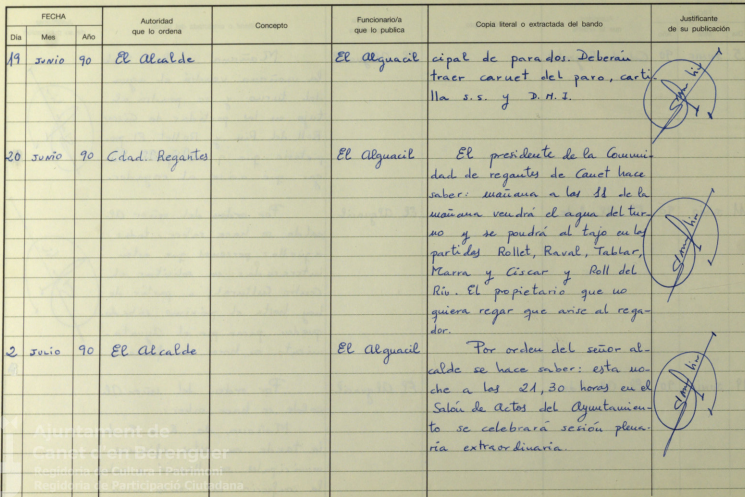 FECHA
Autoridad
que lo ordena
Concepto
Funcionario/a
que lo publica
Copia literal o extractada del bando
Justificante
de su publicación
Día Mes Año
19 JUNIO 90 El Alcalde El Alguacil cipal de parados. Deberán
traer carnet del paro, carti-
lla s.s. y D.N.I.
20 JUNIO 90 Cdad. Regantes El Alguacil El presidente de la Comuni-
dad de regantes de Canet hace
saber: mañana a las 11 de la
mañana vendrá el agua del tur-
no y se pondrá al tajo en las
partidas Rollet, Raval, Tablar,
Marra y Ciscar y Roll del
Riu. El propietario que no
quiera regar que avise al rega-
dor.
2 JULIO 90 El Alcalde El Alguacil Por orden del señor al-
calde se hace saber: esta no-
che a las 21,30 horas en el
Salón de actos del Ayuntamien-
to se celebrará sesión plena-
ria extraordinaria.
Ajuntament de
Canet d'en Berenguer
Regidoria de Cultura i Patrimoni
Regidoria de Participació Ciutadana